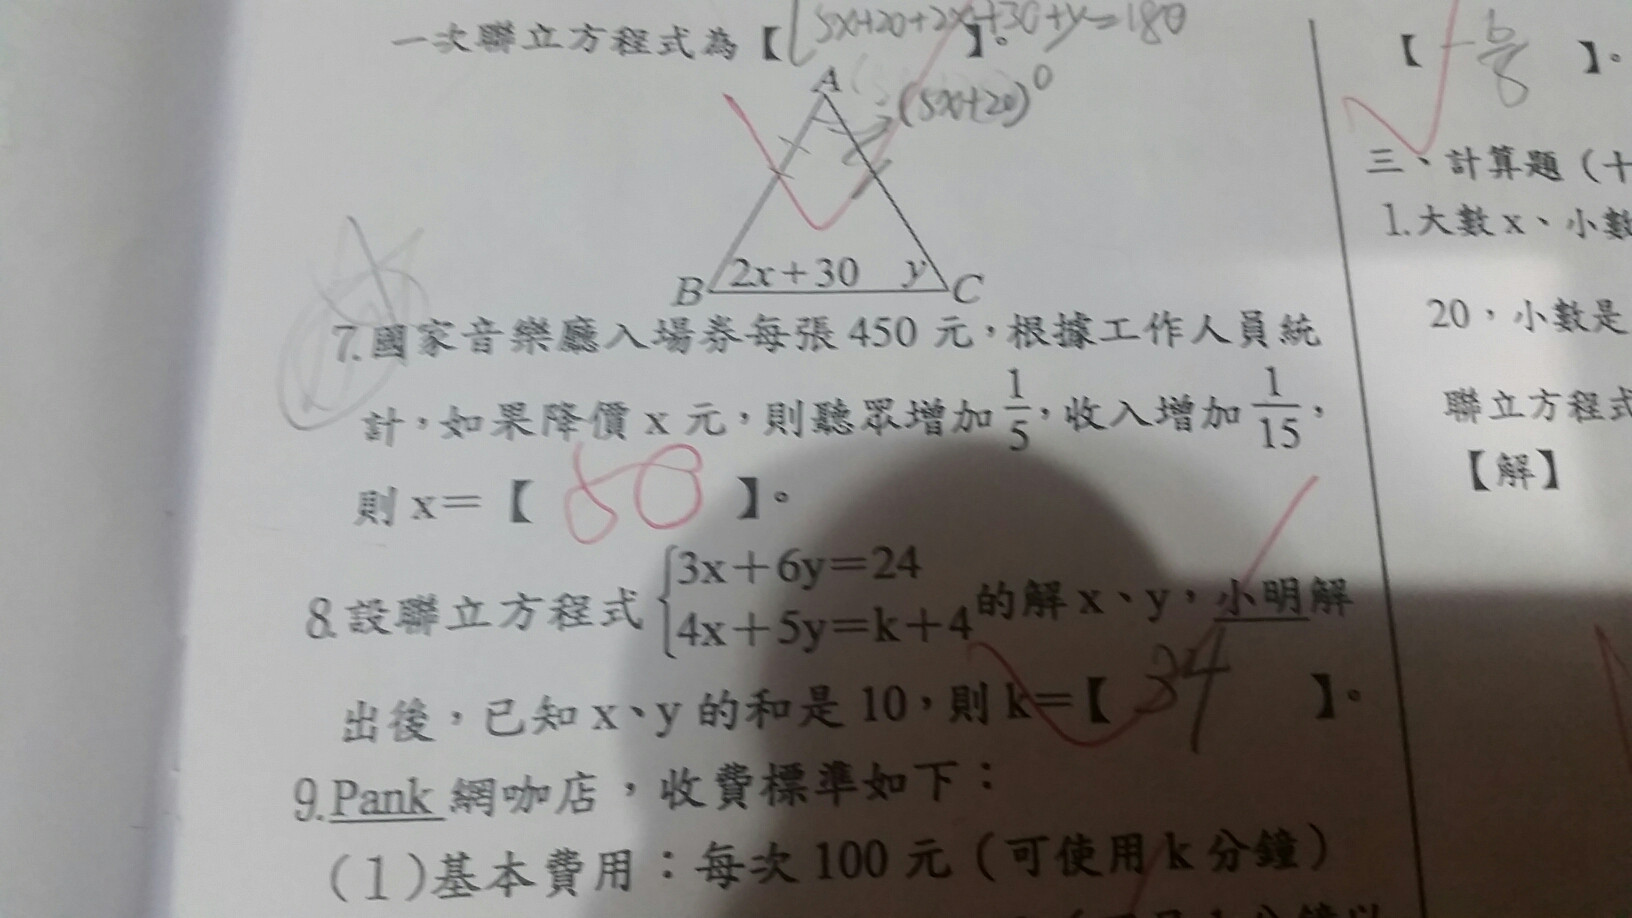 一次聯立方程式為【{5x+20+2x+30+y=180】。
A
(5x+20)⁰
B 2x+30 y C
7.國家音樂廳入場券每張 450 元，根據工作人員統
計，如果降價 x 元，則聽眾增加 1/5，收入增加 1/15，
則 x＝【 50 】。
8.設聯立方程式 {3x＋6y＝24
4x＋5y＝k＋4 的解 x、y，小明解
出後，已知 x、y 的和是 10，則 k＝【 34 】。
9.Pank 網咖店，收費標準如下：
(1)基本費用：每次 100 元（可使用 k 分鐘）
【 】。
三、計算題（十
1.大數 x、小數
20，小數是
聯立方程式
【解】